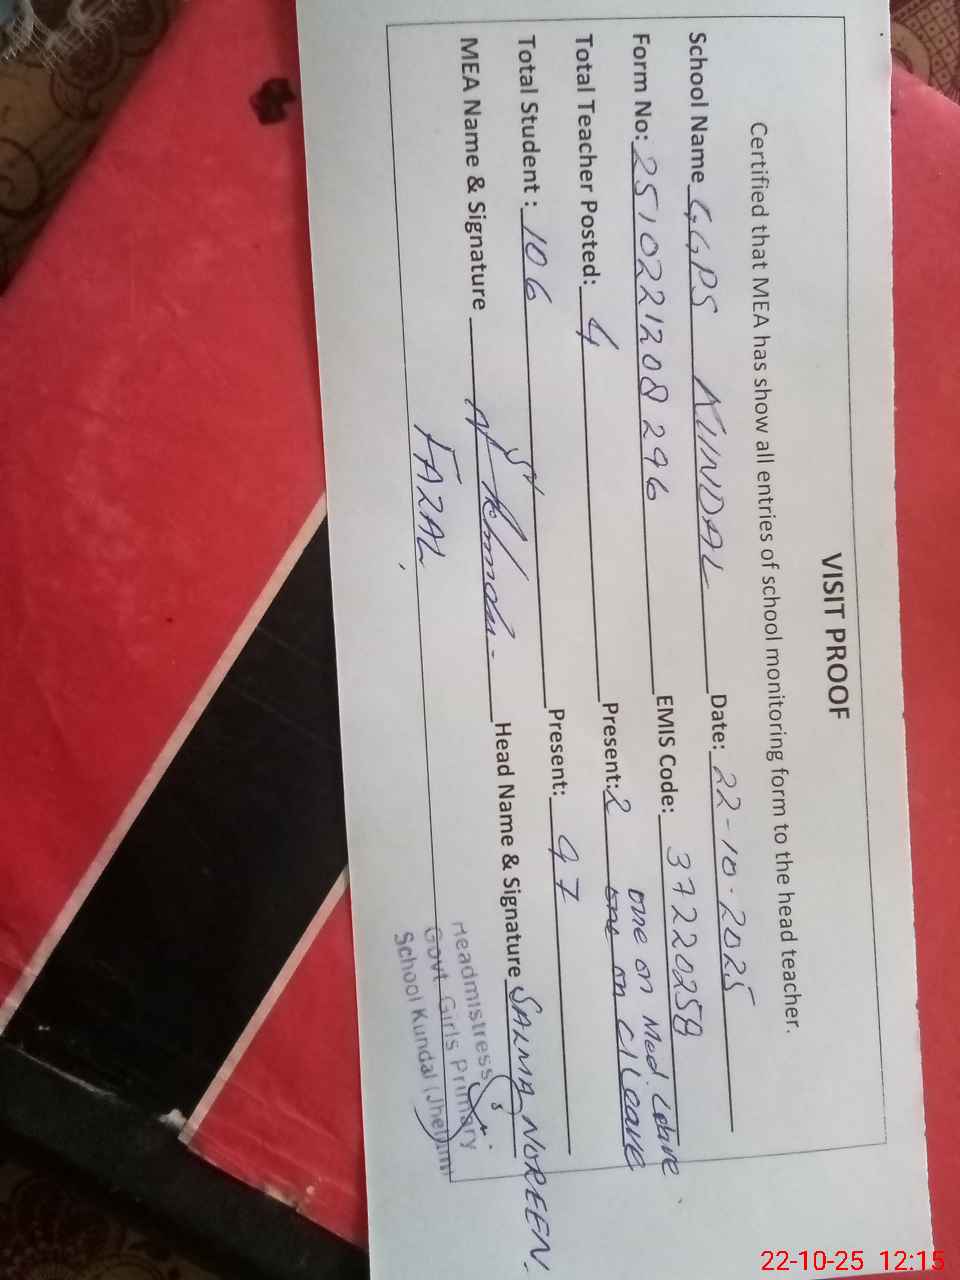 VISIT PROOF
Certified that MEA has show all entries of school monitoring form to the head teacher.
School Name GGPS KUNDAL Date: 22-10-2025
Form No: 2510221208296 EMIS Code: 37220258
one on Med. Leave
Total Teacher Posted: 4 Present: 2 one on C/Leave
Total Student : 106 Present: 97
MEA Name & Signature Head Name & Signature SALMA NOREEN.
FAZAL
Headmistress
Govt. Girls Primary
School Kundal (Jhelum)
22-10-25 12:15